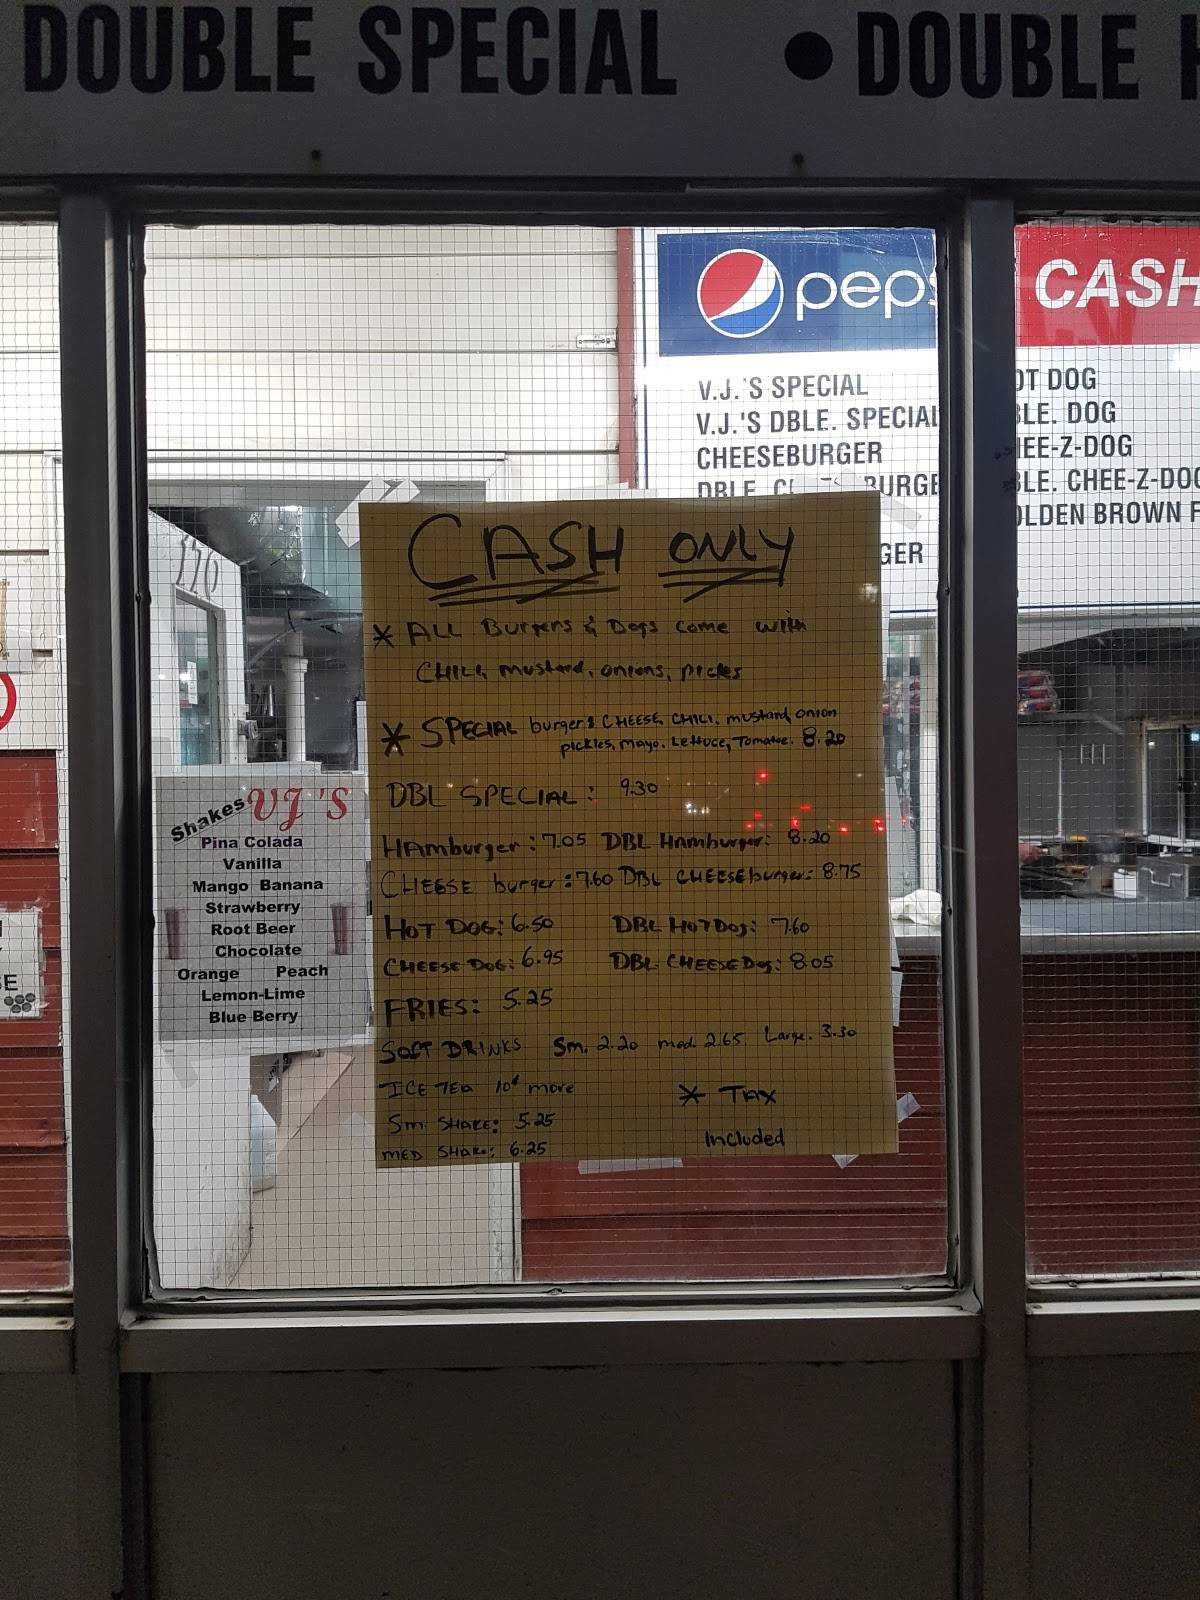 DOUBLE SPECIAL • DOUBLE
pepsi
CASH
V.J.'S SPECIAL
V.J.'S DBLE. SPECIAL
CHEESEBURGER
DBLE. BURGE
GER
OT DOG
BLE. DOG
HEE-Z-DOG
BLE. CHEE-Z-DOG
OLDEN BROWN F
176
CASH ONLY
* ALL Burgers & Dogs come with
CHILI, mustard, onions, picles
* SPECIAL burger: CHEESE, CHILI, mustard, onion
pickles, mayo. Lettuce, Tomatoe. 8.20
DBL SPECIAL: 9.30
HAmburger: 7.05 DBL HAmburger: 8.20
CHEESE burger: 7.60 DBL CHEESEburger: 8.75
HOT DOG: 6.50 DBL HOTDOg: 7.60
CHEESE DOG: 6.95 DBL CHEESEDog: 8.05
FRIES: 5.25
SOFT DRINKS Sm. 2.20 med. 2.65. Large. 3.30
ICE TEA 10¢ more
* TAX
Included
Sm. SHAKE: 5.25
MED SHAKE: 6.25
Shakes VJ'S
Pina Colada
Vanilla
Mango Banana
Strawberry
Root Beer
Chocolate
Orange Peach
Lemon-Lime
Blue Berry